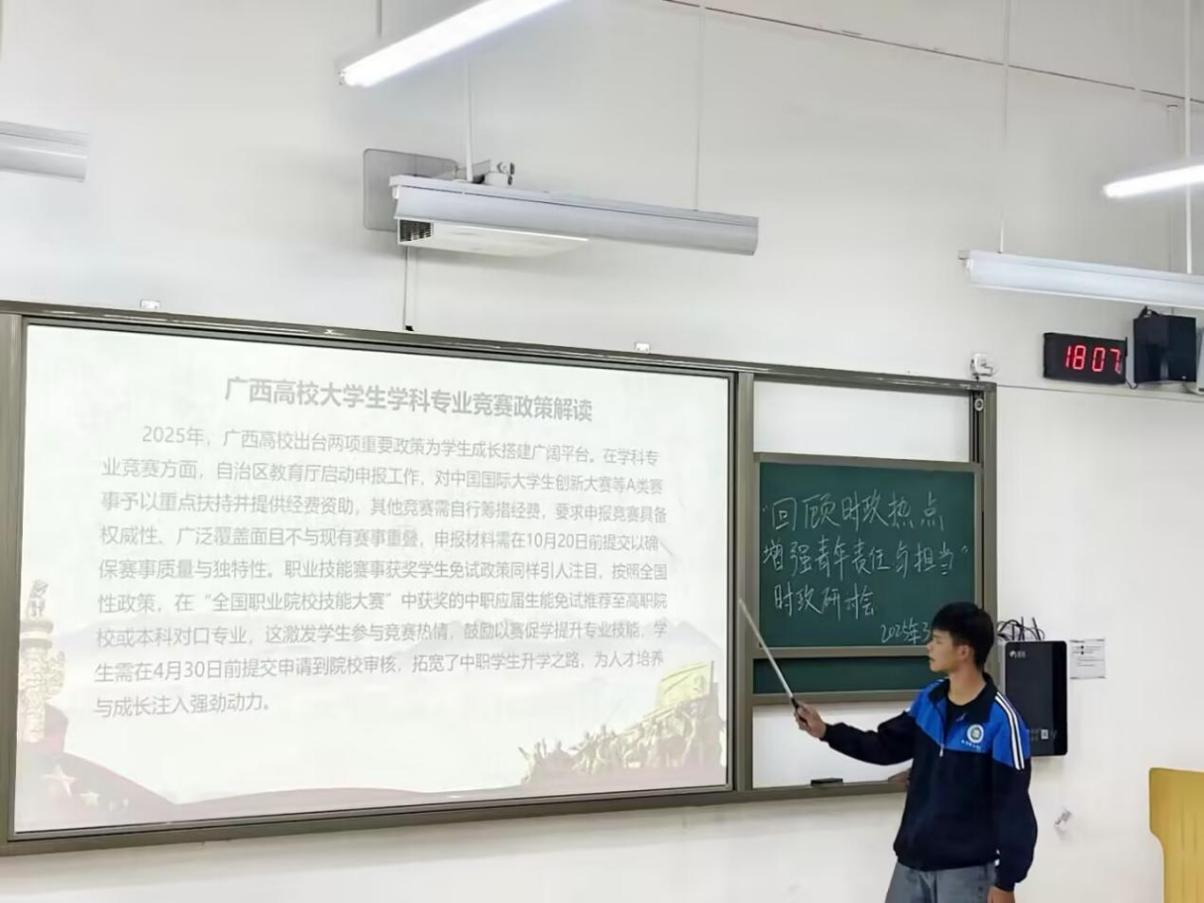 广西高校大学生学科专业竞赛政策解读
2025年，广西高校出台两项重要政策为学生成长搭建广阔平台。在学科专
业竞赛方面，自治区教育厅启动申报工作，对中国国际大学生创新大赛等A类赛
事予以重点扶持并提供经费资助，其他竞赛需自行筹措经费，要求申报竞赛具备
权威性、广泛覆盖面且不与现有赛事重叠，申报材料需在10月20日前提交以确
保赛事质量与独特性。职业技能赛事获奖学生免试政策同样引人注目，按照全国
性政策，在“全国职业院校技能大赛”中获奖的中职应届生能免试推荐至高职院
校或本科对口专业，这激发学生参与竞赛热情，鼓励以赛促学提升专业技能，学
生需在4月30日前提交申请到院校审核，拓宽了中职学生升学之路，为人才培养
与成长注入强劲动力。
“回顾时政热点
增强青年责任与担当”
时政研讨会
2025年3
18:07